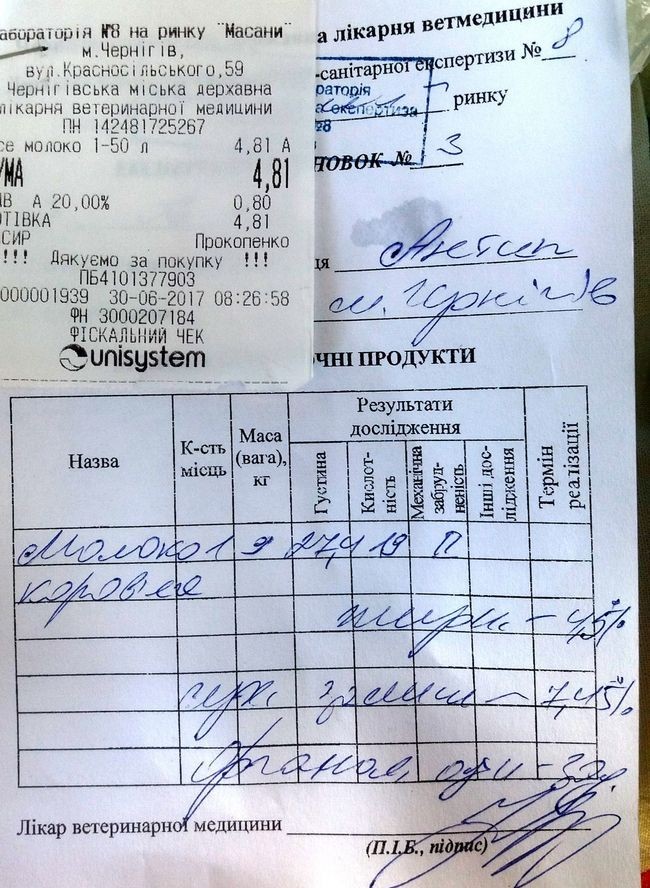 абораторія №8 на ринку "Масани"
м.Чернігів,
вул.Красносільського,59
Чернігівська міська державна
лікарня ветеринарної медицини
ПН 142481725267
се молоко 1-50 л 4,81 А
УМА 4,81
ДВ А 20,00% 0,80
ОТІВКА 4,81
СИР Прокопенко
!!! Дякуємо за покупку !!!
ПБ4101377903
000001939 30-06-2017 08:26:58
ФН 3000207184
ФІСКАЛЬНИЙ ЧЕК
unisystem
а лікарня ветмедицини
-санітарної експертизи № 8
раторія
експертиза
ринку
НОВОК № 3
ця Антип
м. Чернігів
ЧНІ ПРОДУКТИ
Назва
К-сть місць
Маса (вага), кг
Результати дослідження
Густина
Кислот-ність
Механічна забруд-неність
Інші дос-лідження
Термін реалізації
Молоко 1 9 27,4 19 П
коров'яче
жирн. – 4,5%
сух. залиш – 7,45%
Органол. оцін –
Лікар ветеринарної медицини
(П.І.Б., підпис)